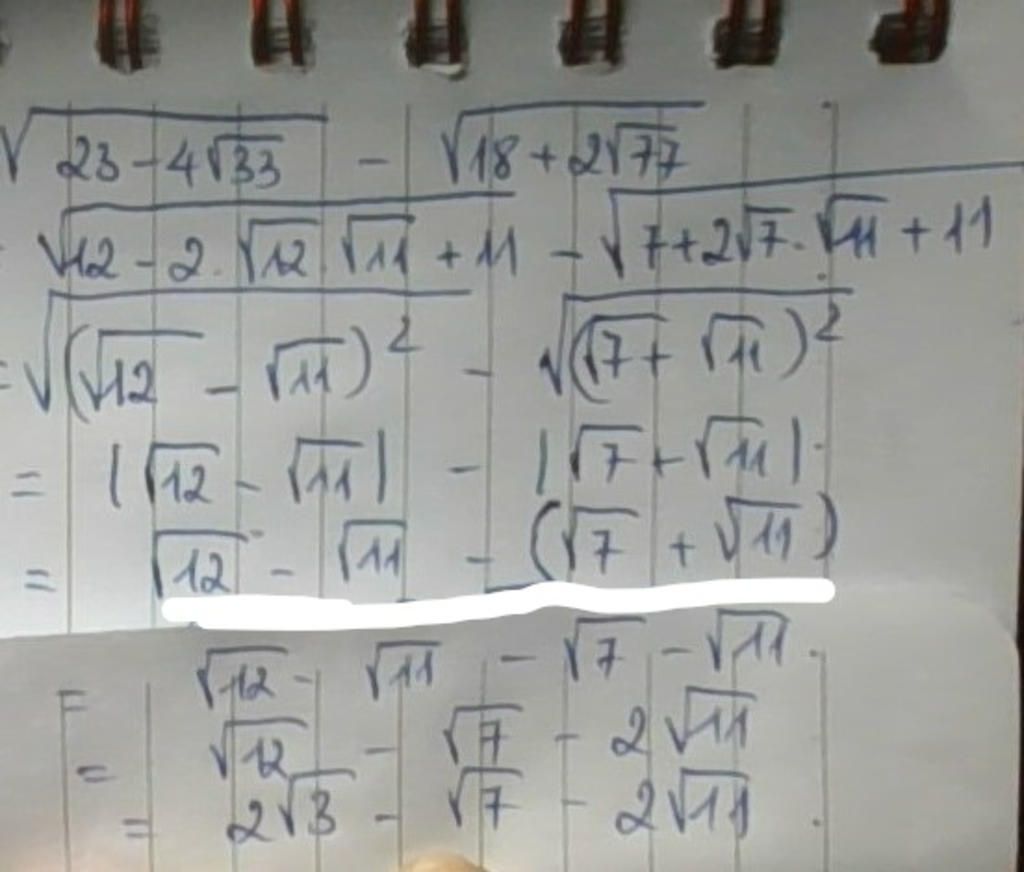 √(23 - 4√33) - √(18 + 2√77)
= √(12 - 2.√12.√11 + 11) - √(7 + 2√7.√11 + 11)
= √((√12 - √11)²) - √((√7 + √11)²)
= |√12 - √11| - |√7 + √11|
= √12 - √11 - (√7 + √11)
= √12 - √11 - √7 - √11.
= √12 - √7 - 2√11
= 2√3 - √7 - 2√11.